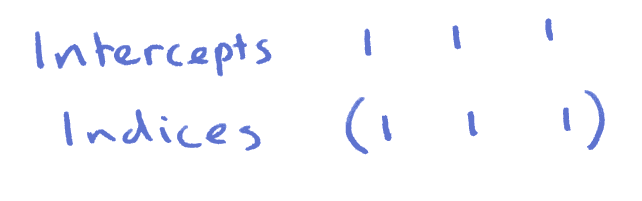 Intercepts 1 1 1
Indices (1 1 1)